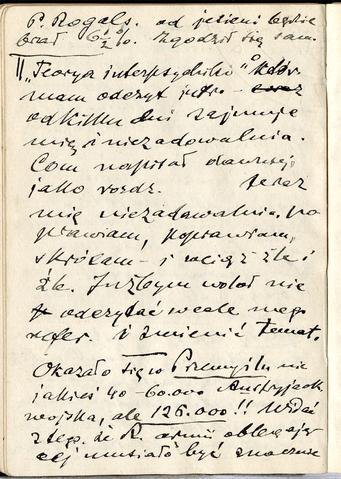 P. Rogals. od jesieni będzie
brał 6 1/2 %. Zgodził się sam.
"Teorya interpsychiki"
mam odczyt jutro -
od kilku dni zajmuje
mię i niezadowalnia.
Com napisał dawniej,
jako rozdz. teraz
mię niezadawalnia. po
prawiam, poprawiam,
skrócam - i wciąż źle i
źle. Jużbym wolał nie
odczytać wcale mego
refer. i zmienić temat.
Okazało się w Przemyślu nie
jakieś 40-60.000 Austryjack
wojska, ale 126.000!! Widać
z tego, że R. armii oblegają-
cej musiało być znacznie